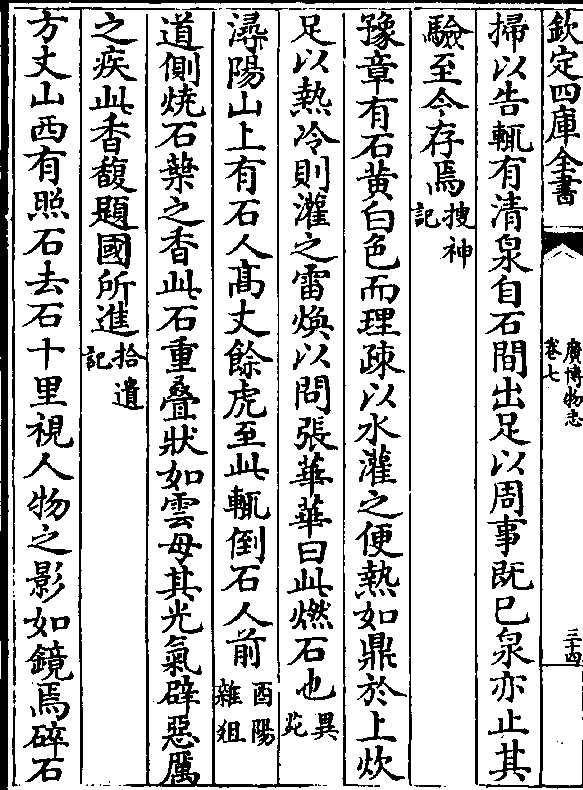 欽定四庫全書
廣博物志
卷七
三十四
掃以告輒有清泉自石間出足以周事既已泉亦止其
驗至今存焉搜神記
豫章有石黄白色而理疎以水灌之便熱如鼎於上炊
足以熱冷則灌之雷煥以問張華華曰此燃石也異苑
潯陽山上有石人高丈餘虎至此輒倒石人前酉陽雜俎
道側燒石葉之香此石重疊狀如雲母其光氣辟惡厲
之疾此香馥題國所進拾遺記
方丈山西有照石去石十里視人物之影如鏡焉碎石